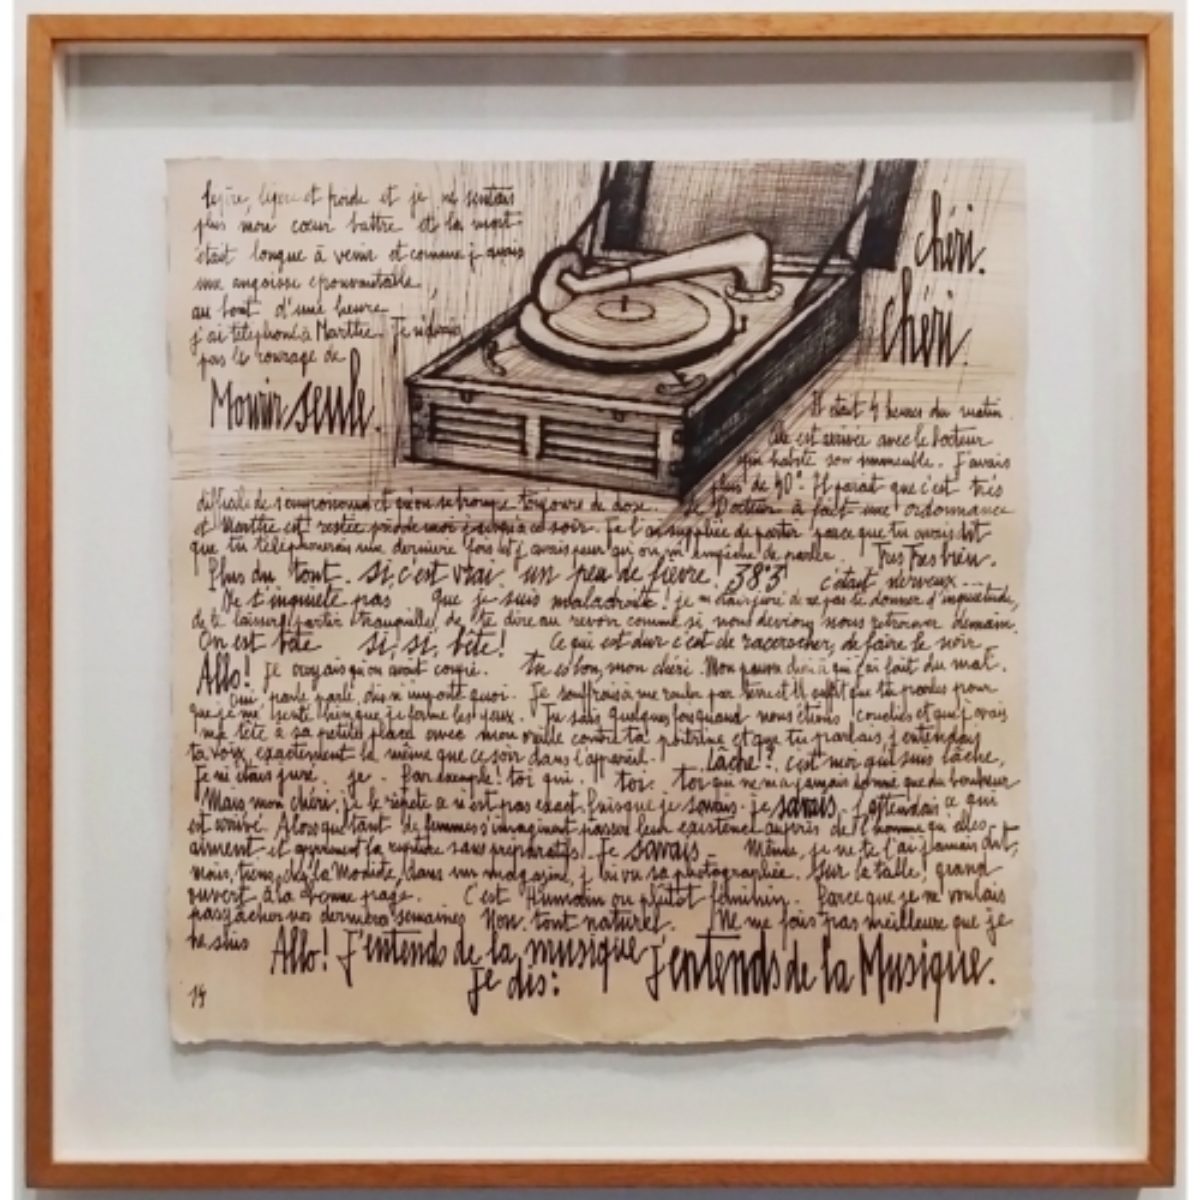 légère, légère et froide et je ne sentais
plus mon cœur battre et la mort
était longue à venir et comme j'avais
une angoisse épouvantable,
au bout d'une heure
j'ai téléphoné à Marthe. Je n'avais
pas le courage de
Mourir seule.
chéri.
chéri.
Il était 4 heures du matin.
Elle est arrivée avec le Docteur
qui habite son immeuble. J'avais
plus de 40°. Il parait que c'est très
difficile de s'empoisonner et qu'on se trompe toujours de dose. Le Docteur à fait une ordonnance
et Marthe est restée près de moi jusqu'à ce soir. Je l'ai suppliée de partir parce que tu avais dit
que tu téléphonerais une dernière fois et j'avais peur qu'on m'empêche de parler. Très Très bien.
Plus du tout. Si c'est vrai un peu de fièvre. 38°3 c'était nerveux ...
Ne t'inquiète pas Que je suis maladroite! je m'étais juré de ne pas te donner d'inquiétude,
de te laisser partir tranquille, de te dire au revoir comme si nous devions nous retrouver demain.
On est bête si, si, bête! Ce qui est dur c'est de raccrocher, de faire le noir
Allo! Je croyais qu'on avait coupé. Tu es bon, mon chéri. Mon pauvre chéri à qui j'ai fait du mal.
Oui, parle parle, dis n'importe quoi. Je souffrais à me rouler par terre et il suffit que tu parles pour
que je me sente bien que je ferme les yeux. Tu sais quelques fois quand nous étions couchés et que j'avais
ma tête à sa petite place avec mon oreille contre ta poitrine et que tu parlais, j'entendais
ta voix, exactement la même que ce soir dans l'appareil. Lâche? c'est moi qui suis lâche.
Je m'étais juré. je - Par exemple! toi qui. toi. toi qui ne m'a jamais donné que du bonheur
Mais mon chéri, je le répète ce n'est pas exact. Puisque je savais - je savais - j'attendais ce qui
est arrivé. Alors que tant de femmes s'imaginent passer leur existence auprès de l'homme qu'elles
aiment et apprennent la rupture sans préparatifs. Je savais - Même, je ne te l'ai jamais dit,
mais, tiens, chez la Modiste, dans un magazine, j'ai vu sa photographie. Sur la table! grand
ouvert à la bonne page. C'est Humain ou plutôt féminin. Parce que je ne voulais
pas gâcher nos dernières semaines Non. tout naturel. Ne me fais pas meilleure que je
ne suis Allo! J'entends de la musique J'entends de la Musique.
Je dis:
14